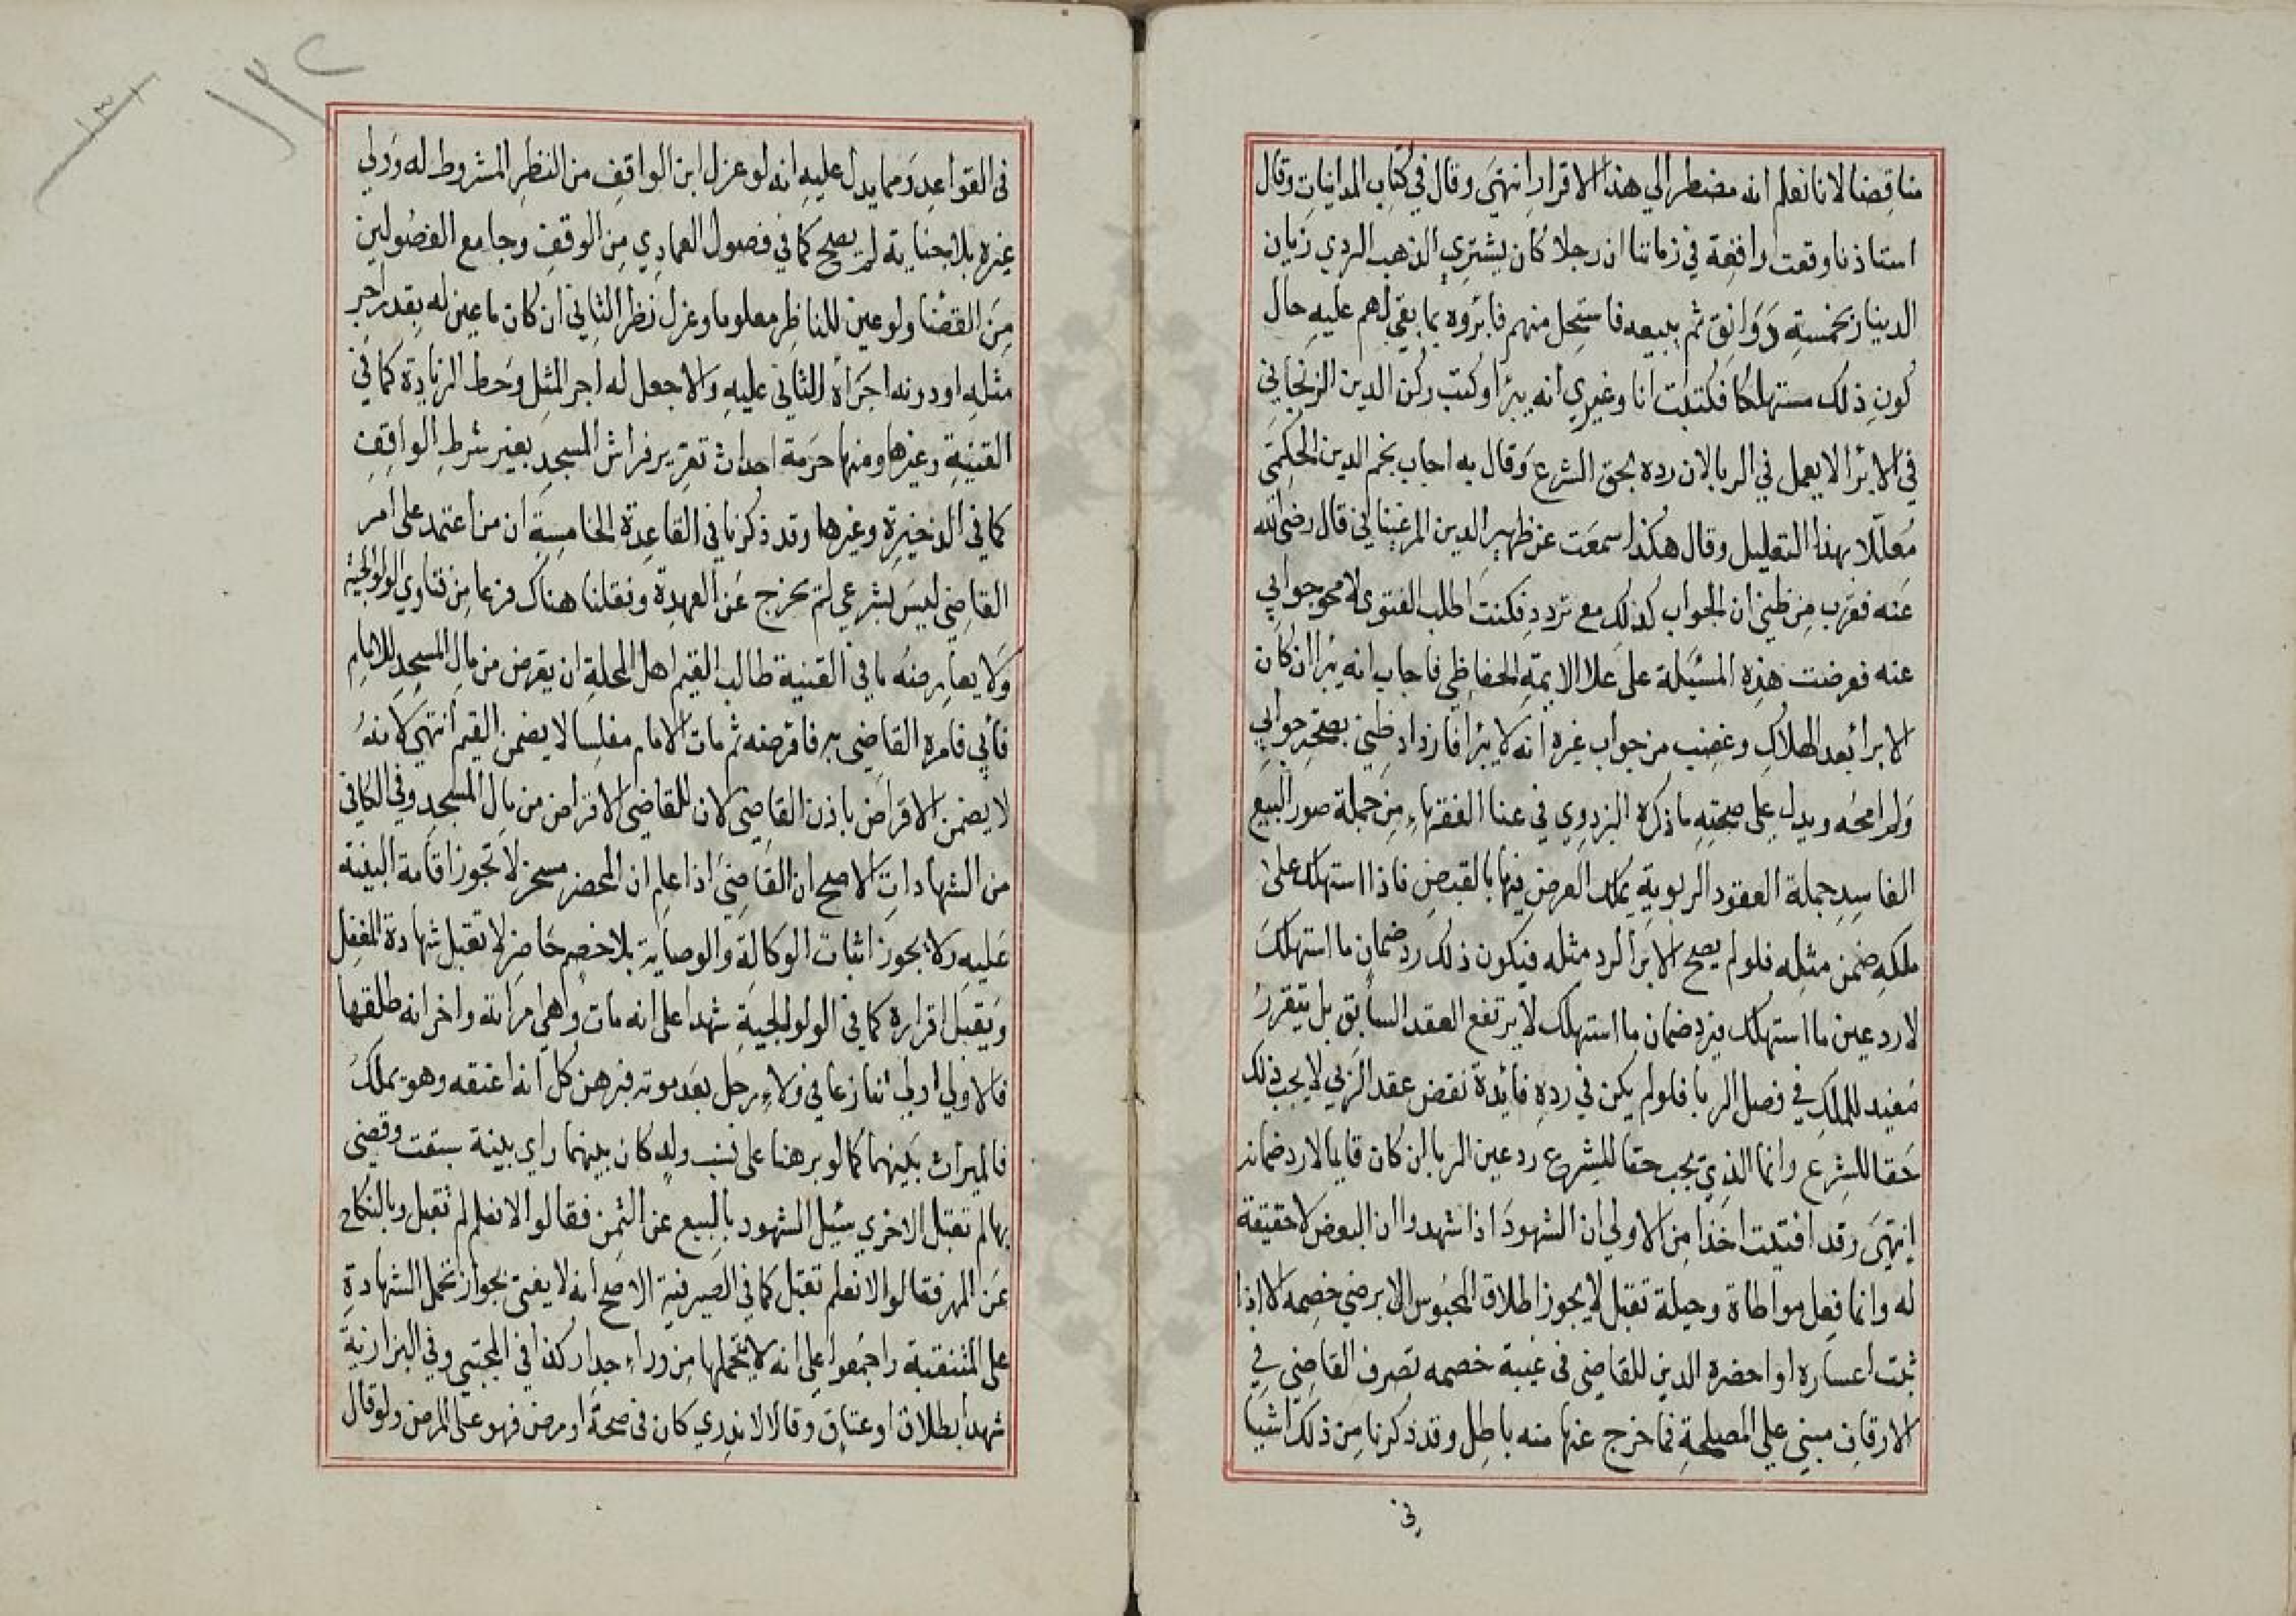 مناقضا لانا نعلم انه مضطر الي هذا الاقرار انتهى وقال في كتاب المداينات وقال
استاذنا وقعت واقعة في زماننا ان رجلا كان يشتري الذهب الردي زمان
الدينار بخمسة دوانق ثم يبيعه فاستحل منهم فابروه بما بقي لهم عليه حال
كون ذلك مستهلكا فكتبت انا وغيري انه يبرا وكتب ركن الدين الزنجاني
في الابرا لا يعمل في الربا لان رده بحق الشرع وقال به اجاب نجم الدين الحكمي
معللا بهذا التعليل وقال هكذا سمعت عن ظهير الدين المرغيناني قال رضي الله
عنه فقرب من ظني ان الجواب كذلك مع تردد فكنت اطلب الفتوى لامحو جوابي
عنه فعرضت هذه المسئلة على علا الايمة الحفاظي فاجاب انه يبرا ان كان
الابرا بعد الهلاك وغضب من جواب غيره انه لا يبرا فازداد ظني بصحة جوابي
ولم امحه ويدل على صحته ما ذكره البزدوي في عنا الفقهاء من جملة صور البيع
الفاسد جملة العقود الربوية يملك العوض فيها بالقبض فاذا استهلك على
ملكه ضمن مثله فلو لم يصح الابرا لرد مثله فيكون ذلك رد ضمان ما استهلك
لا رد عين ما استهلك فبرد ضمان ما استهلك لا يرتفع العقد السابق بل يتقرر
مفيد للملك في فصل الربا فلو لم يكن في رده فائدة نقض عقد الربي لا يجب ذلك
حقا للشرع وانما الذي يجب حقا للشرع رد عين الربا ان كان قايما لا رد ضمانه
انتهى وقد افتيت اخذا من الاولي ان الشهود اذا شهدوا ان البعض لا حقيقة
له وانما فعل مواطاة وحيلة تقبل لا يجوز اطلاق المحبوس الا برضي خصمه الا اذا
ثبت اعساره او احضره الدين للقاضي في غيبة خصمه تصرف القاضي في
الاوقاف مبني علي المصلحة فما خرج عنها منه باطل وقد ذكرنا من ذلك اشيا
في
١٣٢
١٣١
في القواعد ومما يدل عليه انه لو عزل ابن الواقف من النظر المشروط له وولي
غيره بلا جناية لم يصح كما في فصول العمادي من الوقف وجامع الفصولين
من القضا ولو عين للناظر معلوما وعزل نظر الثاني ان كان ما عين له بقدر اجر
مثله او دونه اجراه الثاني عليه والا جعل له اجر المثل وحط الزيادة كما في
القنية وغيرها ومنها حرمة احداث تقرير فراش المسجد بغير شرط الواقف
كما في الذخيرة وغيرها وقد ذكرنا في القاعدة الخامسة ان من اعتمد على امر
القاضي ليس بشرعي لم يخرج عن العهدة ونقلنا هناك فرعا من فتاوي الولوالجية
ولا يعارضه ما في القنية طالب القيم اهل المحلة ان يقرض من مال المسجد للامام
فابي فامره القاضي به فاقرضه ثم مات الامام مفلسا لا يضمن القيم انتهي لانه
لا يضمن الاقراض باذن القاضي لان للقاضي الاقراض من مال المسجد وفي الكافي
من الشهادات الاصح ان القاضي اذا علم ان المحضر مسخر لا تجوز اقامة البينة
عليه ولا يجوز اثبات الوكالة والوصاية بلا خصم حاضر لا تقبل شهادة المغفل
ويقبل اقراره كما في الولوالجية شهدا على انه مات وهي امراته واخر انه طلقها
فالاولي اولي تنازعا في ولاء رجل بعد موته فبرهن كل انه اعتقه وهو يملك
فالميراث بينهما كما لو برهنا على نسب ولد كان بينهما واي بينة سبقت وقضي
بها لم تقبل الاخري سئيل الشهود بالبيع عن الثمن فقالوا لا نعلم لم تقبل وبالنكاح
عن المهر فقالوا لا نعلم تقبل كما في الصيرفية الاصح انه لا يفتى بجواز تحمل الشهادة
على المتنقبة واجمعوا على انه لا يتحملها من وراء جدار كذا في المجتبي وفي البزازية
شهدا بطلاق او عتاق وقالا لا ندري كان في صحة او مرض فهو على المرض ولو قال